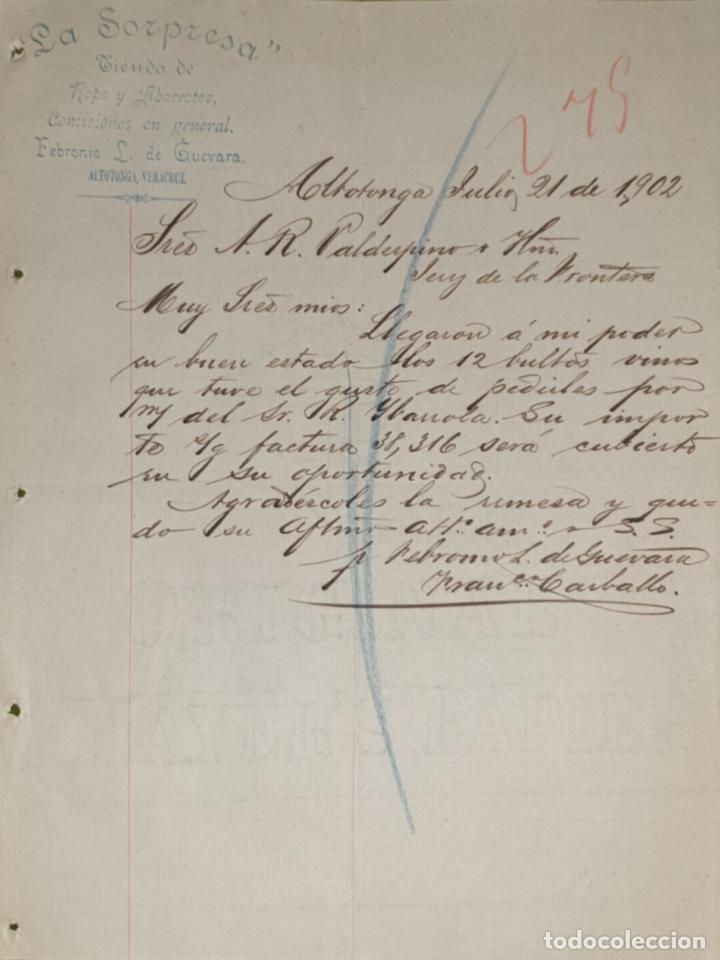 "La Sorpresa"
Tienda de
Ropa y Abarrotes,
Comisiones en general.
Febronio L. de Guevara.
ALTOTONGA, VERACRUZ
275
Altotonga Julio 21 de 1,902
Sres A. R. Valdespino y Hno.
Jerez de la Frontera
Muy Sres mios:
Llegaron á mi poder
en buen estado los 12 bultos vinos
que tuve el gusto de pedirles por
m/ del Sr. R. Ybarrola. Su impor
te s/g factura 38,316 será cubierto
en su oportunidad.
Agradéscoles la remesa y que-
do su Aftmo att.o am.o y S. S.
p. Febronio L. de Guevara
Fran.co Carballo.
todocoleccion